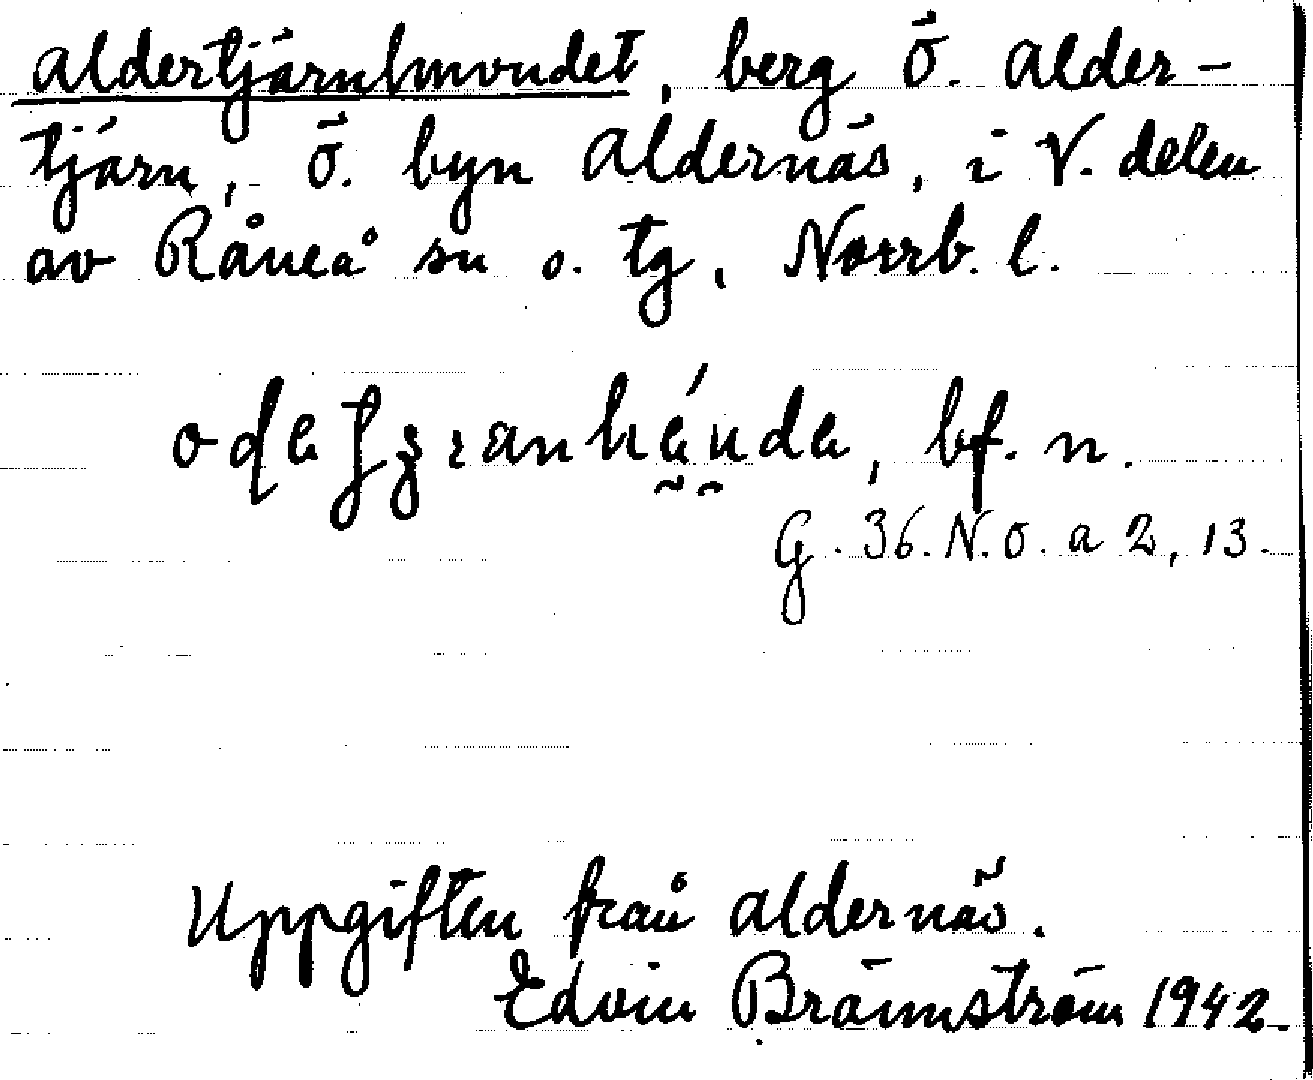 Aldertjärnhmondet, berg Ö. Alder-
tjärn, Ö. byn Aldernäs, i V. delen
av Råneå sn o. tg, Norrb. l.
bf. n.
G. 36. N. O. a 2, 13.
Uppgiften från Aldernäs.
Edvin Brännström 1942.